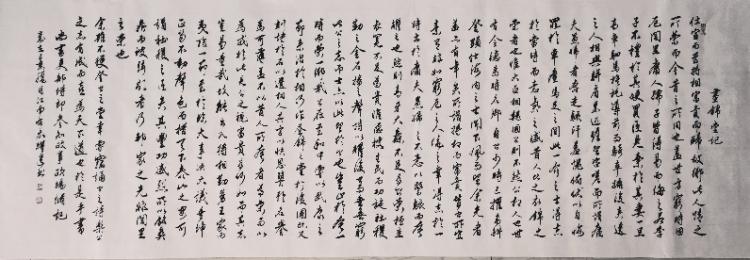 晝錦堂記
仕宦而至將相富貴而歸故鄉此人情之
所榮而今昔之所同也蓋士方窮時困
阨閭里庸人孺子皆得易而侮之若季
子不禮於其嫂買臣見棄於其妻一旦
高車駟馬旗旄導前而騎卒擁後夾道
之人相與駢肩累迹瞻望咨嗟而所謂庸
夫愚婦者奔走駭汗羞愧俯伏以自悔
罪於車塵馬足之間此一介之士得志
於當時而意氣之盛昔人比之衣錦之
榮者也惟大丞相魏國公則不然公相人也世
有令德為時名卿自公少時已擢高科
登顯仕海內之士聞下風而望餘光者
蓋亦有年矣所謂將相而富貴皆公所宜
素有非如窮阨之人僥倖得志於一
時出於庸夫愚婦之不意以驚駭而夸
耀之也然則高牙大纛不足為公榮桓圭
袞冕不足為公貴惟德被生民而功施社稷
勒之金石播之聲詩以耀後世而垂無窮
此公之志而士亦以此望於公也豈止夸一
時而榮一鄉哉公在至和中嘗以武康之
節來治於相乃作晝錦之堂于後圃既又
刻詩於石以遺相人其言以快恩讎矜名譽
為可薄蓋不以昔人所夸者為榮而以
為戒於此見公之視富貴為何如而其志
豈易量哉故能出入將相勤勞王家而
夷險一節至於臨大事決大議垂紳
正笏不動聲色而措天下於泰山之安可
謂社稷之臣矣其豐功盛烈所以銘彝
鼎而被弦歌者乃邦家之光非閭里
之榮也
余雖不獲登公之堂幸嘗竊誦公之詩樂公
之志有成而喜為天下道也於是乎書
尚書吏部侍郎參知政事歐陽修記